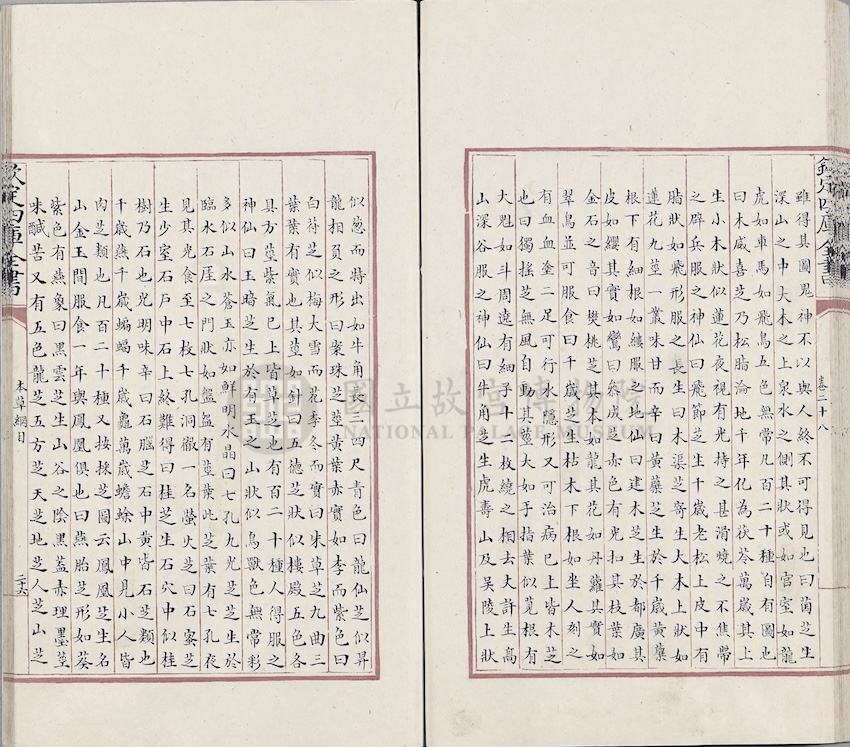 欽定四庫全書
卷二十八
雖得其圖鬼神不以與人終不可得見也曰菌芝生
深山之中大木之上泉水之側其狀或如宫室如龍
虎如車馬如飛鳥五色無常凡百二十種自有圖也
曰木威喜芝乃松脂淪地千年化為茯苓萬歲其上
生小木狀似蓮花夜視有光持之甚滑燒之不焦帶
之辟兵服之神仙曰飛節芝生千歲老松上皮中有
脂狀如飛形服之長生曰木渠芝寄生大木上狀如
蓮花九莖一叢味甘而辛曰黄蘗芝生於千歲黄蘗
根下有細根如縷服之地仙曰建木芝生於都廣其
皮如纓其實如鸞曰參成芝赤色有光扣其枝葉如
金石之音曰樊桃芝其木如龍其花如丹蘿其實如
翠鳥並可服食曰千歲芝生枯木下根如坐人刻之
有血血塗二足可行水隱形又可治病已上皆木芝
也曰獨摇芝無風自動其莖大如手指葉似莧根有
大魁如斗周遶有細子十二枚繞之相去丈許生高
山深谷服之神仙曰牛角芝生虎壽山及吳陵上狀
似葱而特出如牛角長三四尺青色曰龍仙芝似昇
龍相負之形曰紫珠芝莖黄葉赤實如李而紫色曰
白苻芝似梅大雪而花季冬而實曰朱草芝九曲三
葉葉有實也其莖如針曰五德芝狀似樓殿五色各
具方莖紫氣已上皆草芝也有百二十種人得服之
神仙曰玉暗芝生於有玉之山狀似鳥獸色無常彩
多似山水蒼玉亦如鮮明水晶曰七孔九光芝生於
臨水石厓之間狀如盤盌有莖葉此芝葉有七孔夜
見其光食至七枚七孔洞徹一名螢火芝曰石蜜芝
生少室石户中石上終難得曰桂芝生石穴中似桂
樹乃石也光明味辛曰石腦芝石中黄皆石芝類也
千歲燕千歲蝙蝠千歲龜萬歲蟾蜍山中見小人皆
肉芝類也凡百二十種又按採芝圖云鳳凰芝生名
山金玉間服食一年與鳳凰俱也曰燕胎芝形如葵
紫色有燕象曰黑雲芝生山谷之陰黑蓋赤理墨莖
味鹹苦又有五色龍芝五方芝天芝地芝人芝山芝
欽定四庫全書
本草綱目
二十六
國立故宮博物院
NATIONAL PALACE MUSEUM